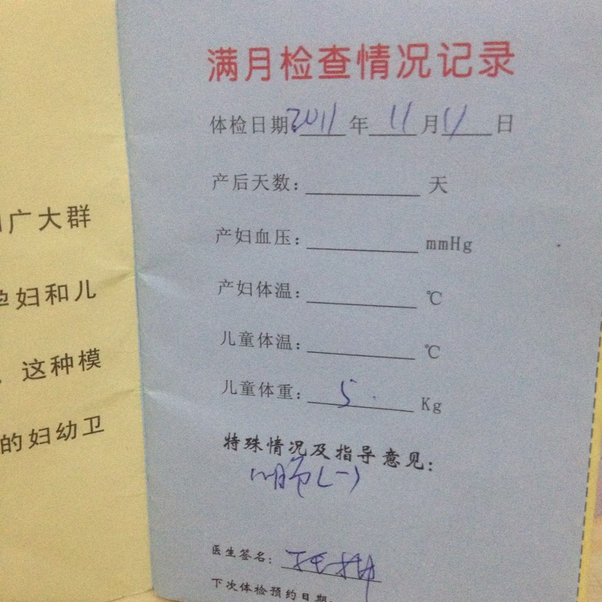 广大群
孕妇和儿
，这种模
的妇幼卫
满月检查情况记录
体检日期:2011年11月11日
产后天数: 天
产妇血压: mmHg
产妇体温: ℃
儿童体温: ℃
儿童体重: 5. Kg
特殊情况及指导意见:
(-)
医生签名:
下次体检预约日期: